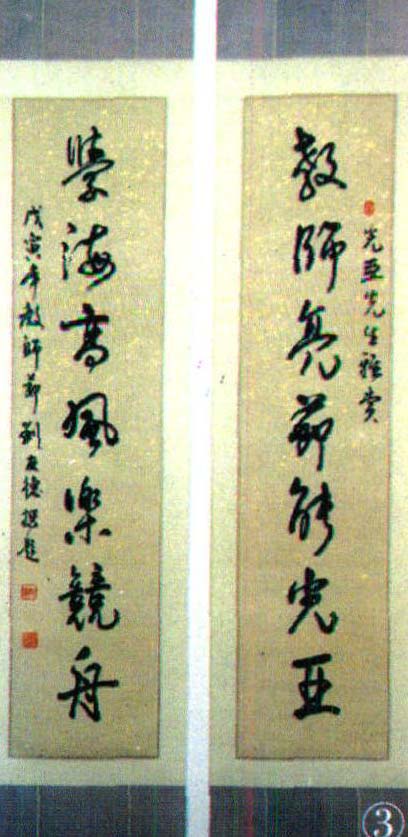 光亞先生雅賞
教師亮節能光亞
學海高風樂競舟
戊寅年教師節劉友德撰題
③